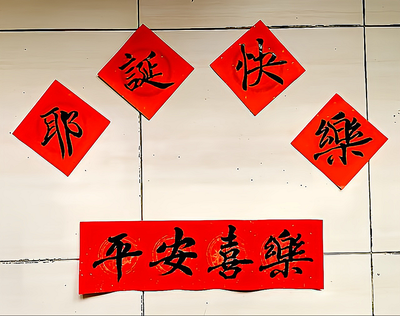 耶誕快樂
平安喜樂